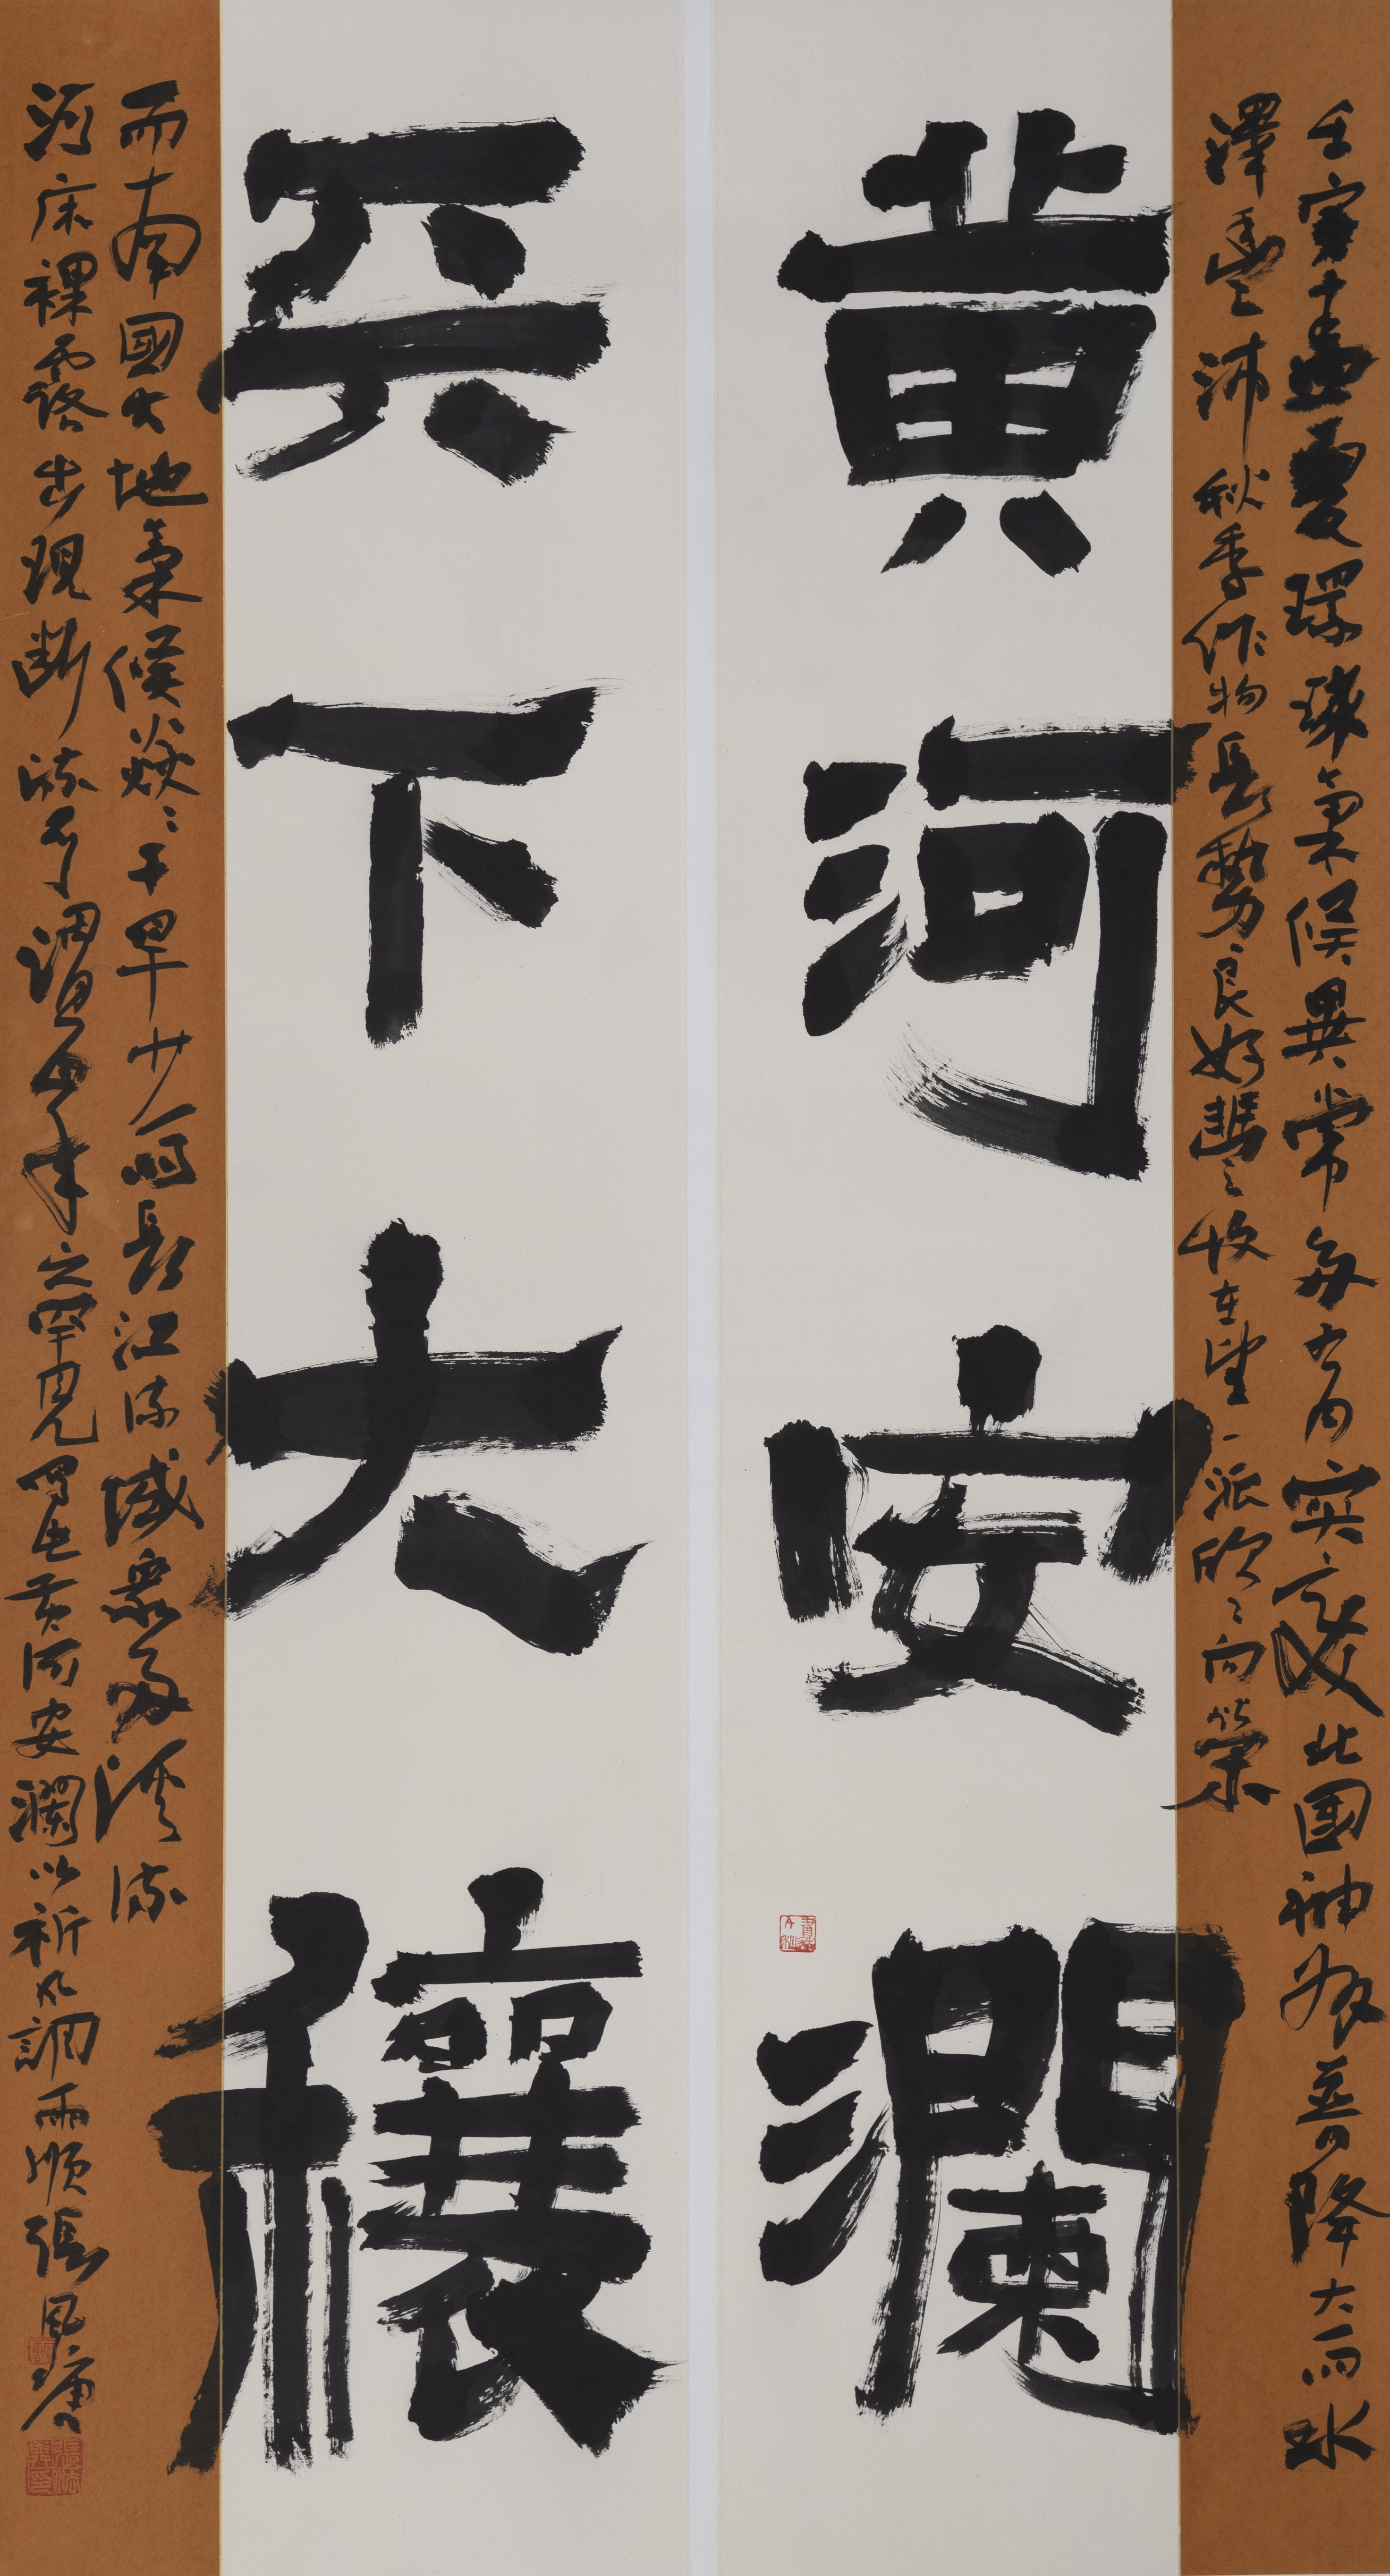 壬寅夏環球氣候異常多有突變北國神普降大雨水
澤豐沛秋季作物長勢良好豐收在望一派欣欣向榮
黄河安瀾
兲下大穰
而南國大地氣候焱焱干旱少雨長江流域衆多溪流
河床裸露出現斷流可謂百年之罕見寫此黄河安瀾以祈風調雨順張風塘